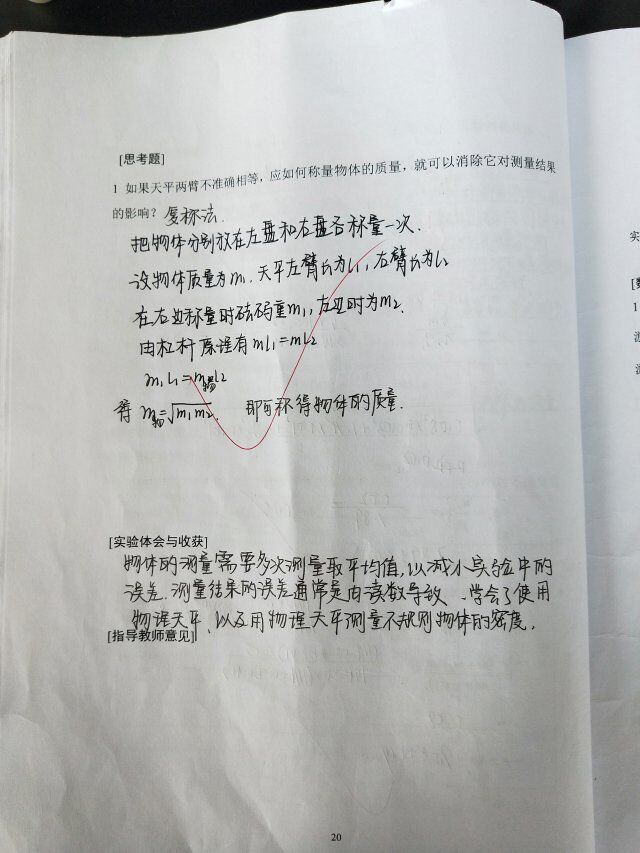 [思考题]
1 如果天平两臂不准确相等，应如何称量物体的质量，就可以消除它对测量结果
的影响？复称法.
把物体分别放在左盘和右盘各称量一次.
设物体质量为m.天平左臂长为l₁,右臂长为l₂
在右边称量时砝码重m₁,左边时为m₂.
由杠杆原理有 ml₁=ml₂
m₁l₁=m物l₂
得 m物=√m₁m₂. 即可称得物体的质量.
[实验体会与收获]
物体的测量需要多次测量取平均值,以减小实验中的
误差.测量结果的误差通常是由读数导致.学会了使用
物理天平,以及用物理天平测量不规则物体的密度.
[指导教师意见]
20